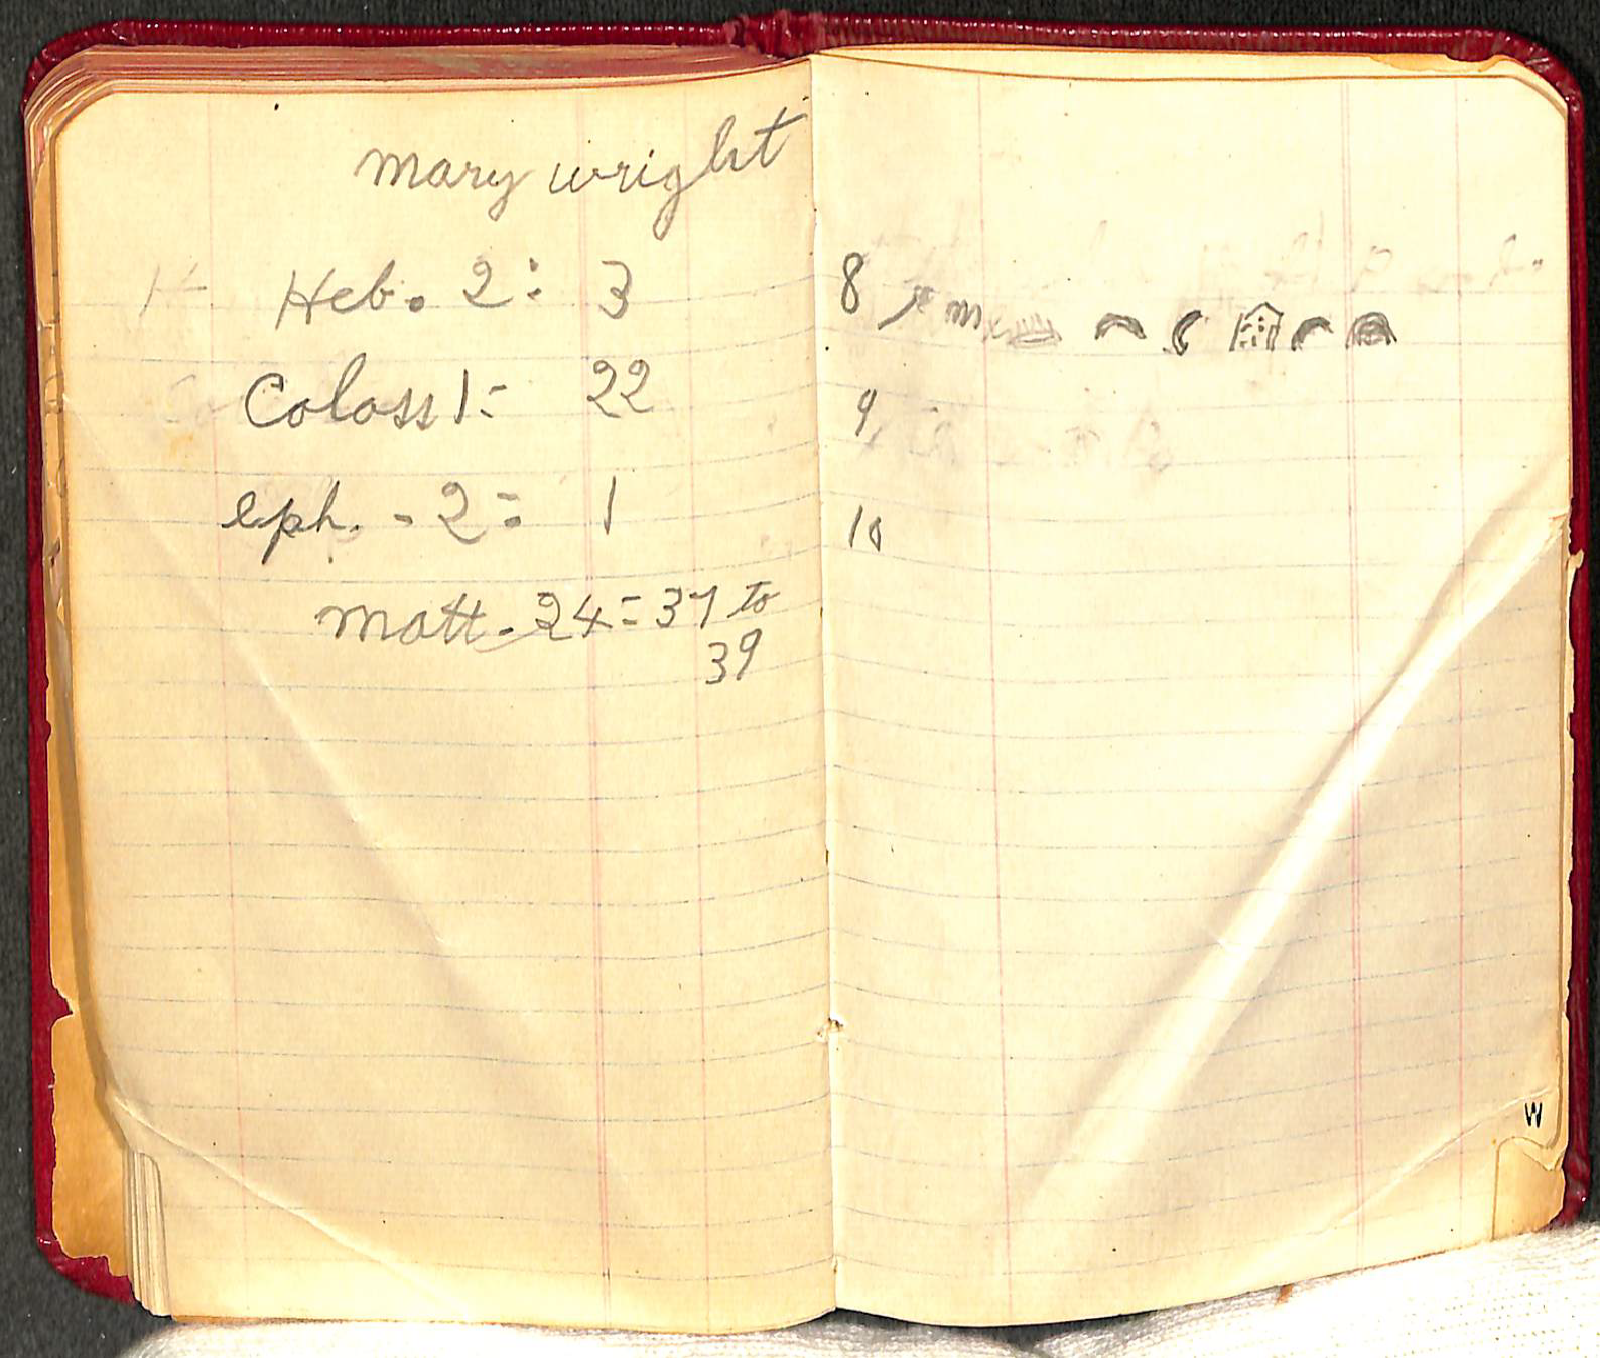 mary wright
Heb. 2: 3
Coloss 1: 22
eph. - 2: 1
matt. 24: 37 to
39
8
9
10
W